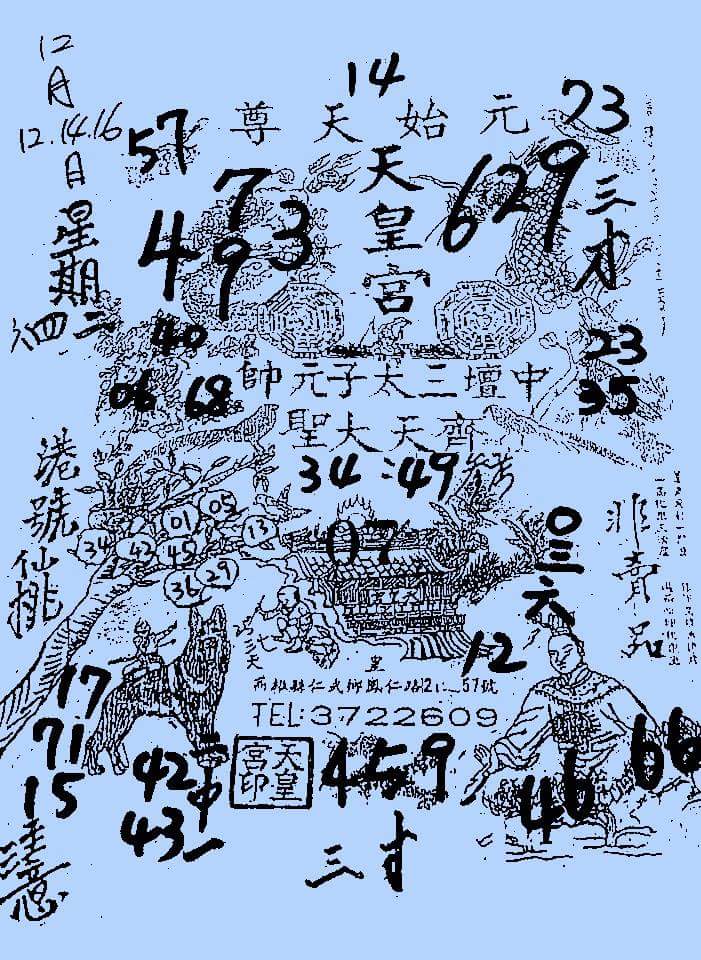 12
月
12.14.16
日
星期
四二
14
元始天尊
57
73
天皇宮
7
4 9 3
629
三才
40
06 68
23
35
中壇三太子元帥
齊天大聖
34:49
港號仙桃
01 05
34 42 45 13
36 29
07
0三六
非賣品
七天
12
17
71
15
注意
高雄縣仁武鄉鳳仁路21_57號
TEL:3722609
42
43
二中一
天皇宮印
459
46
66
三才